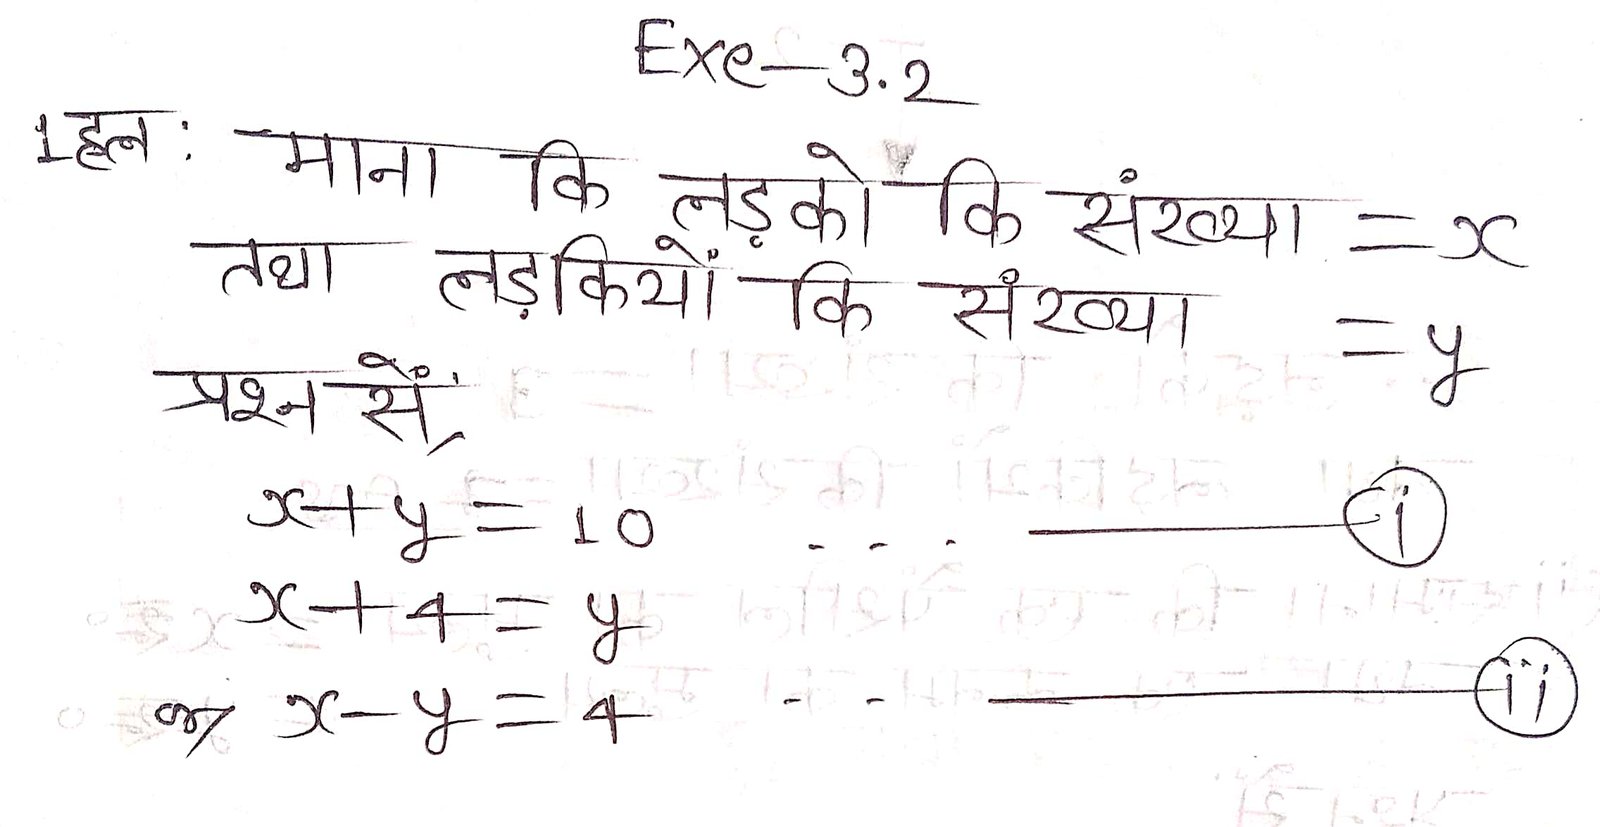 Exe-3.2
1हल: माना कि लड़को कि संख्या = x
तथा लड़कियों कि संख्या = y
प्रश्न सें,
x+y = 10 ... i
x+4 = y
or, x-y = 4 .. ii